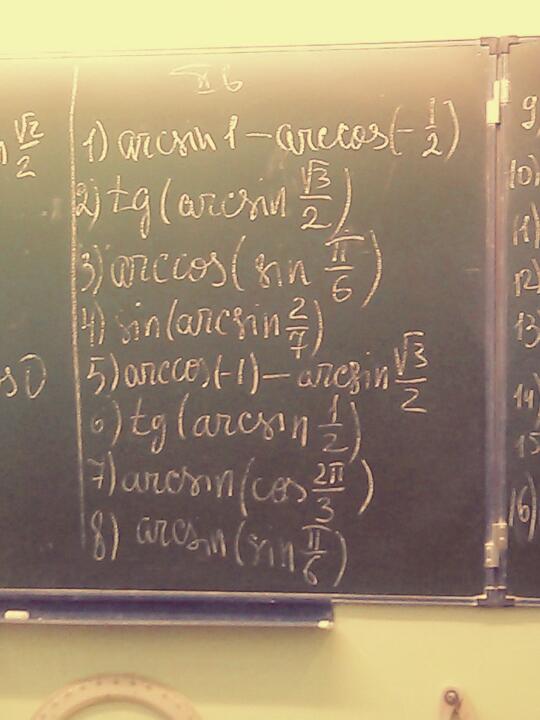 √2/2
II б
1) arcsin 1 - arccos(-1/2)
2) tg(arcsin √3/2)
3) arccos(sin π/6)
4) sin(arcsin 2/7)
5) arccos(-1) - arcsin √3/2
6) tg(arcsin 1/2)
7) arcsin(cos 2π/3)
8) arcsin(sin π/6)
9
10)
11)
12)
13)
14)
15
16)